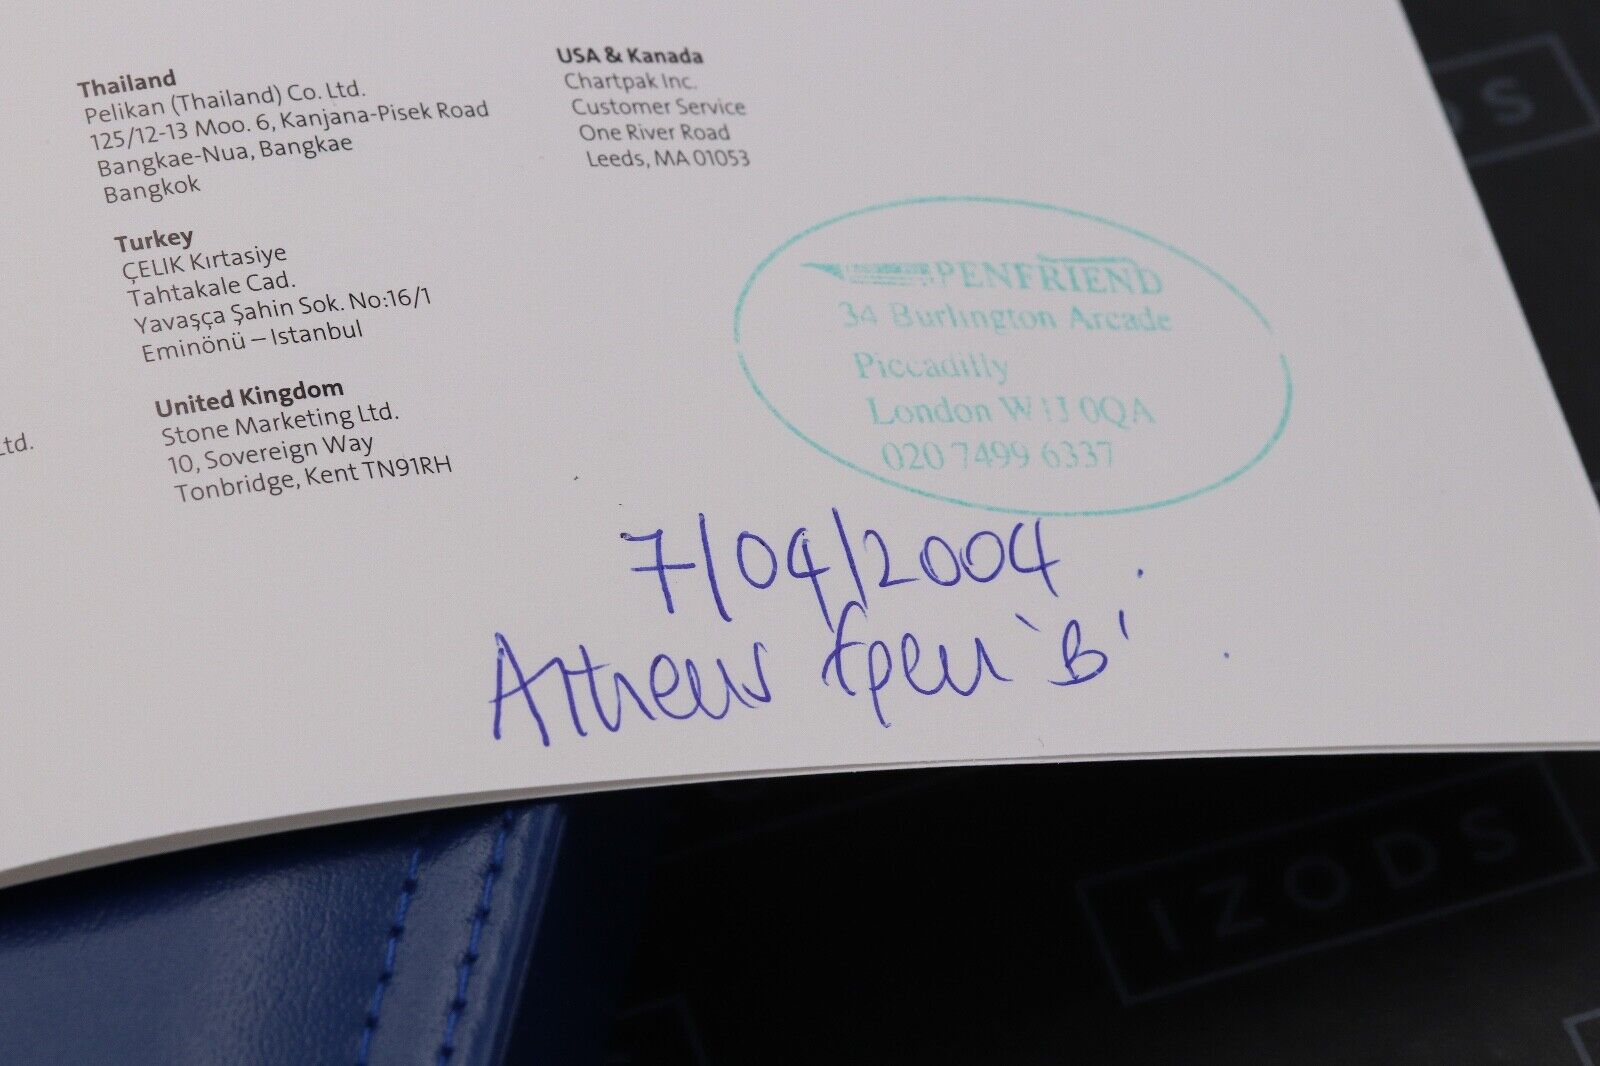 Thailand
Pelikan (Thailand) Co. Ltd.
125/12-13 Moo. 6, Kanjana-Pisek Road
Bangkae-Nua, Bangkae
Bangkok
Turkey
ÇELIK Kırtasiye
Tahtakale Cad.
Yavaşça Şahin Sok. No:16/1
Eminönü – Istanbul
United Kingdom
Stone Marketing Ltd.
10, Sovereign Way
Tonbridge, Kent TN91RH
Ltd.
USA & Kanada
Chartpak Inc.
Customer Service
One River Road
Leeds, MA 01053
PENFRIEND
34 Burlington Arcade
Piccadilly
London W1J 0QA
020 7499 6337
7/04/2004 .
'B' .
DS
IZODS